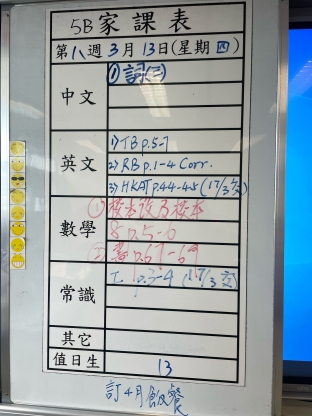 5B 家課表
第八週 3月 13日(星期四)
中文
① 詞(三)
英文
1) TB p.5-7
2) RB p.1-4 Corr.
3) HKAT p.44-45 (17/3 交)
數學
p.5-6
p.67-69
常識
p.3-4 (17/3 交)
其它
值日生
13
訂4月飯餐